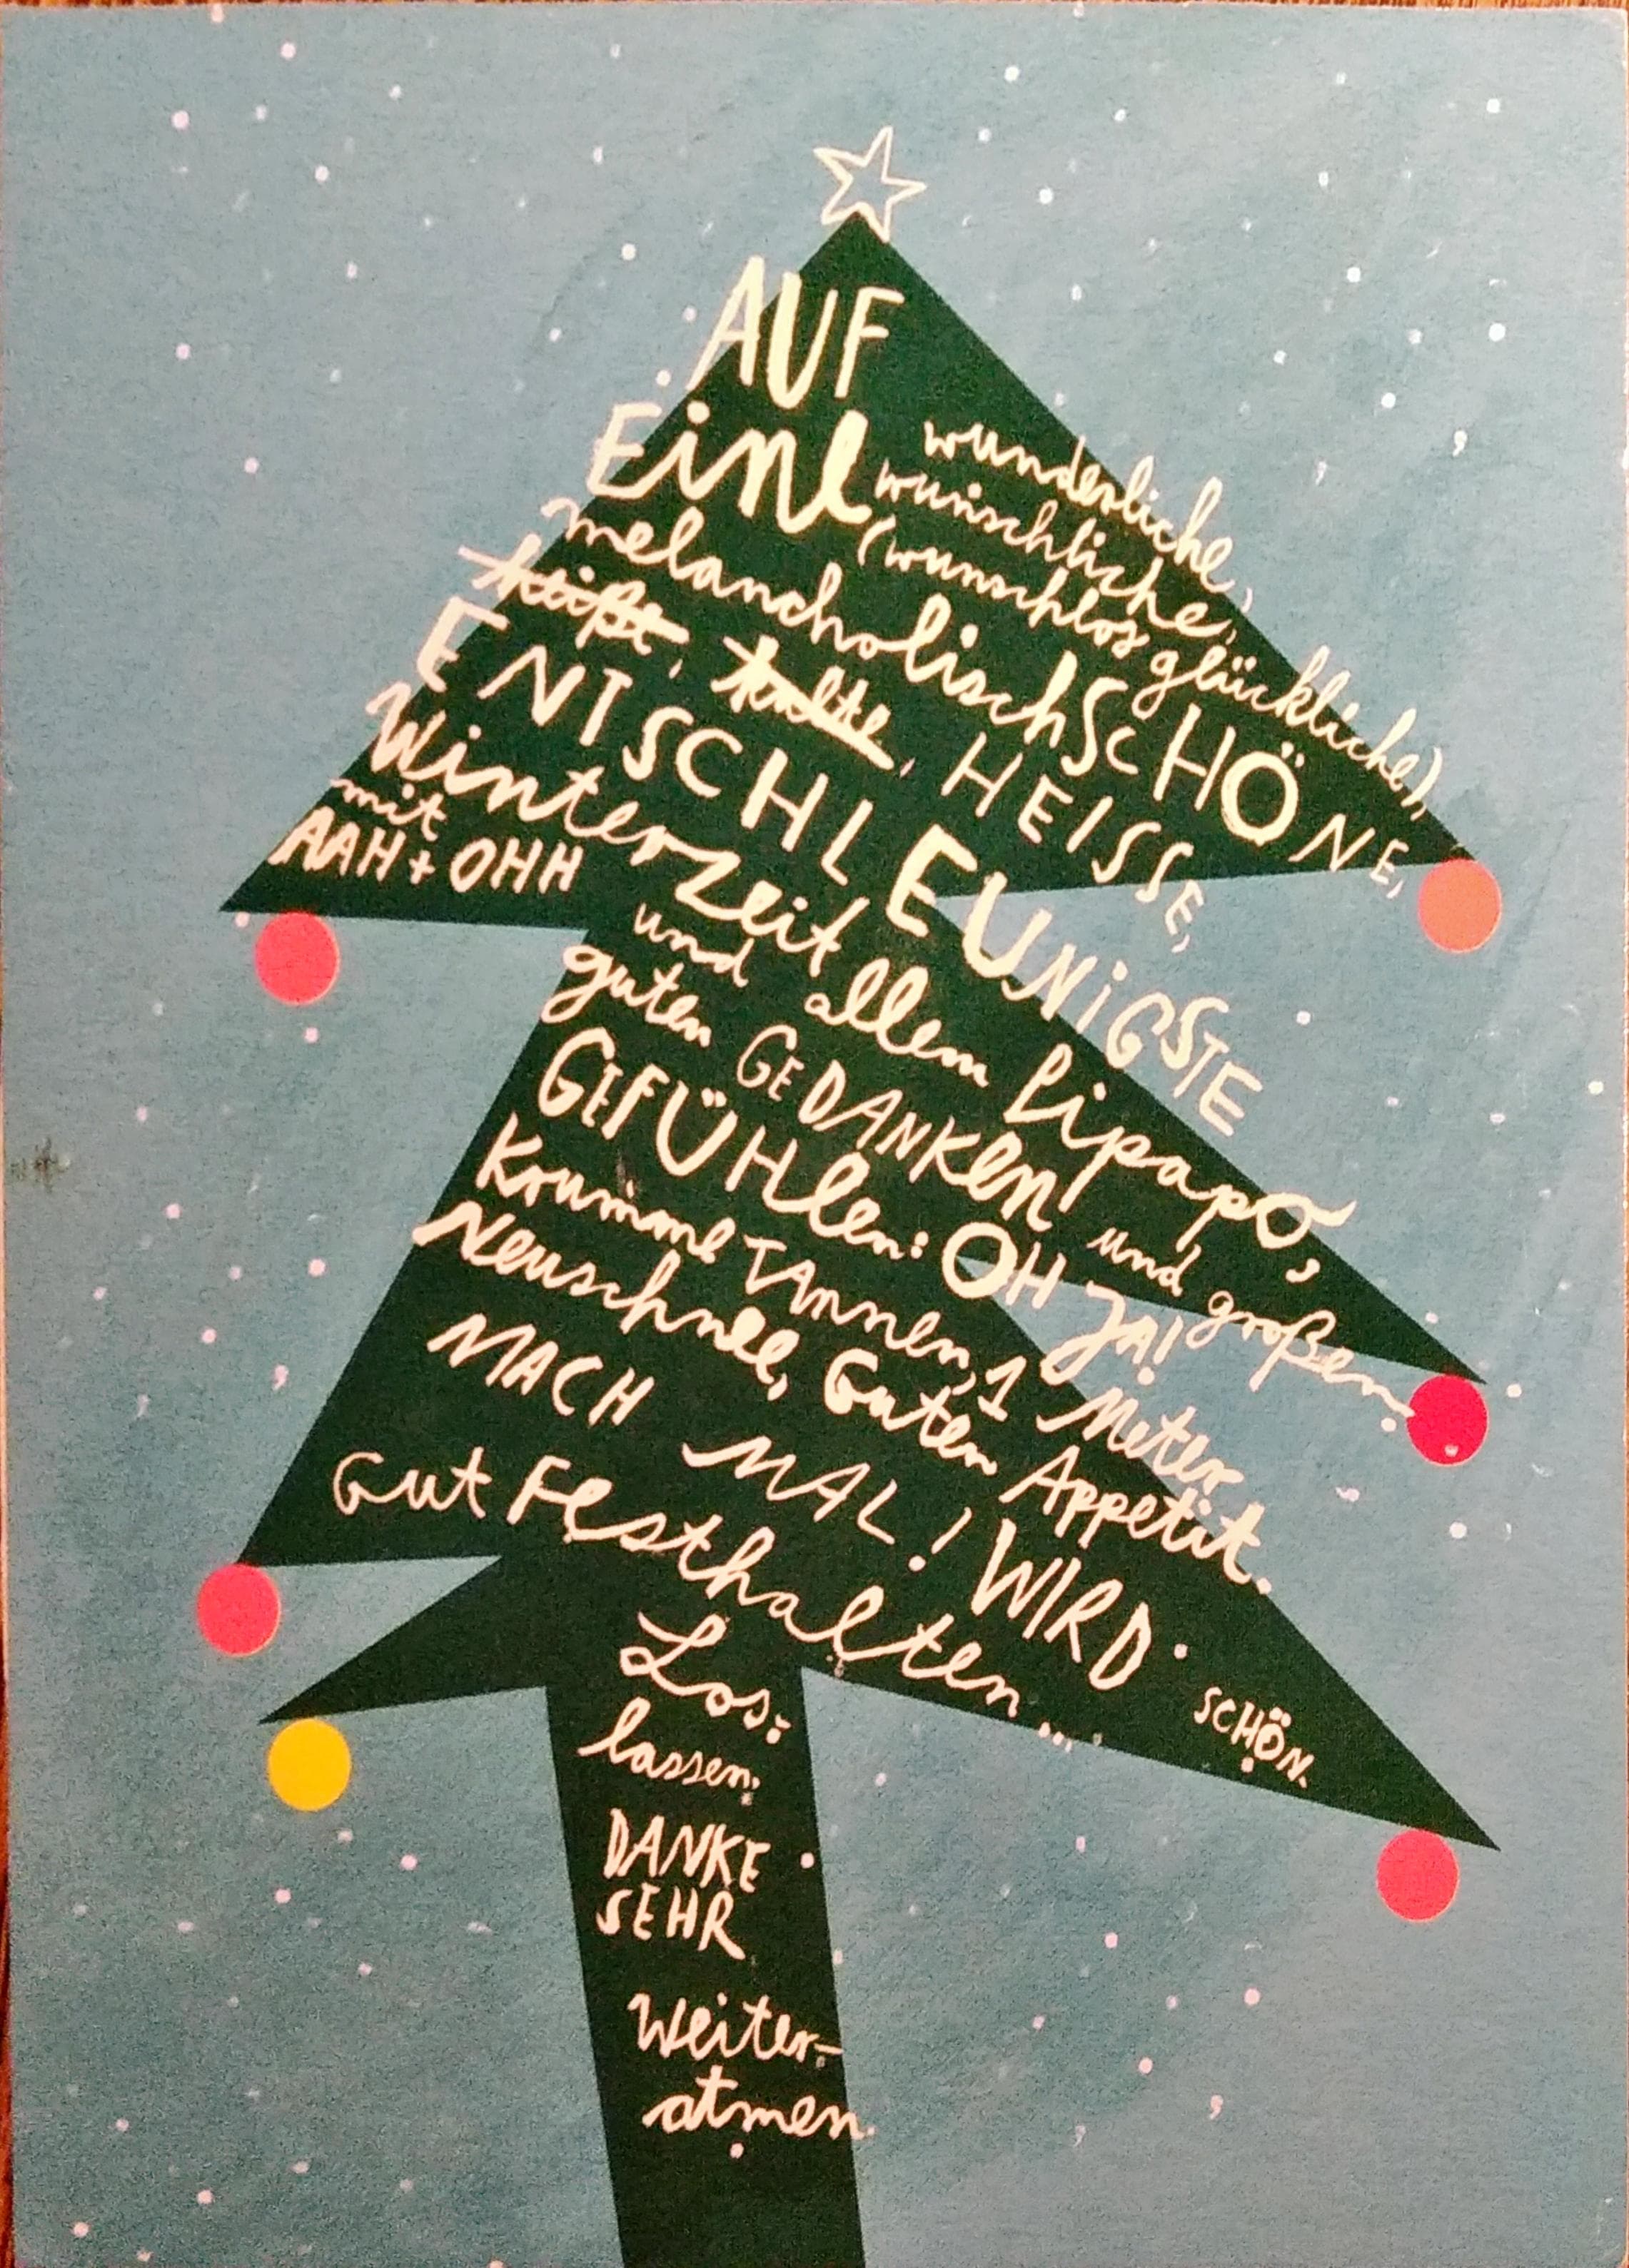 AUF
Eine wunderliche,
wünschliche,
(wunschlos glückliche),
melancholischSCHÖNE,
kalte, HEISSE,
ENTSCHLEUNIGSTE
Winterzeit
mit
AAH + OHH
und allem Pipapo,
guten GEDANKEN und großen
GEFÜHLEN: OH JA!
Krumme TANNEN, 1 Meter
Neuschnee, Guten Appetit.
MACH MAL! WIRD SCHÖN.
Gut Festhalten ...
Los-
lassen.
DANKE
SEHR
Weiter-
atmen.